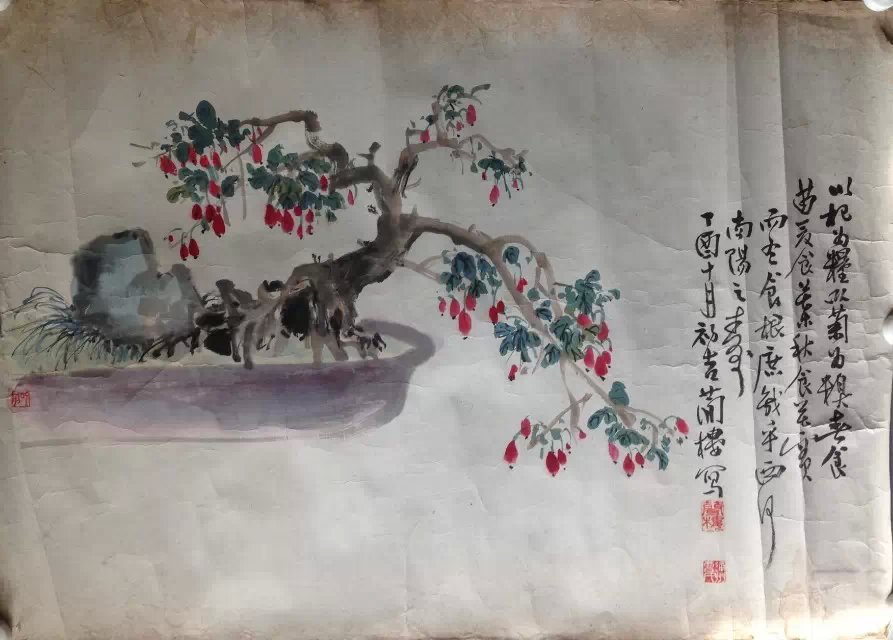 以杞为糧以菊为糗春食
苗夏食葉秋食花實
而冬食根庶幾乎西河
南陽之寿
丁酉十月初吉樓写